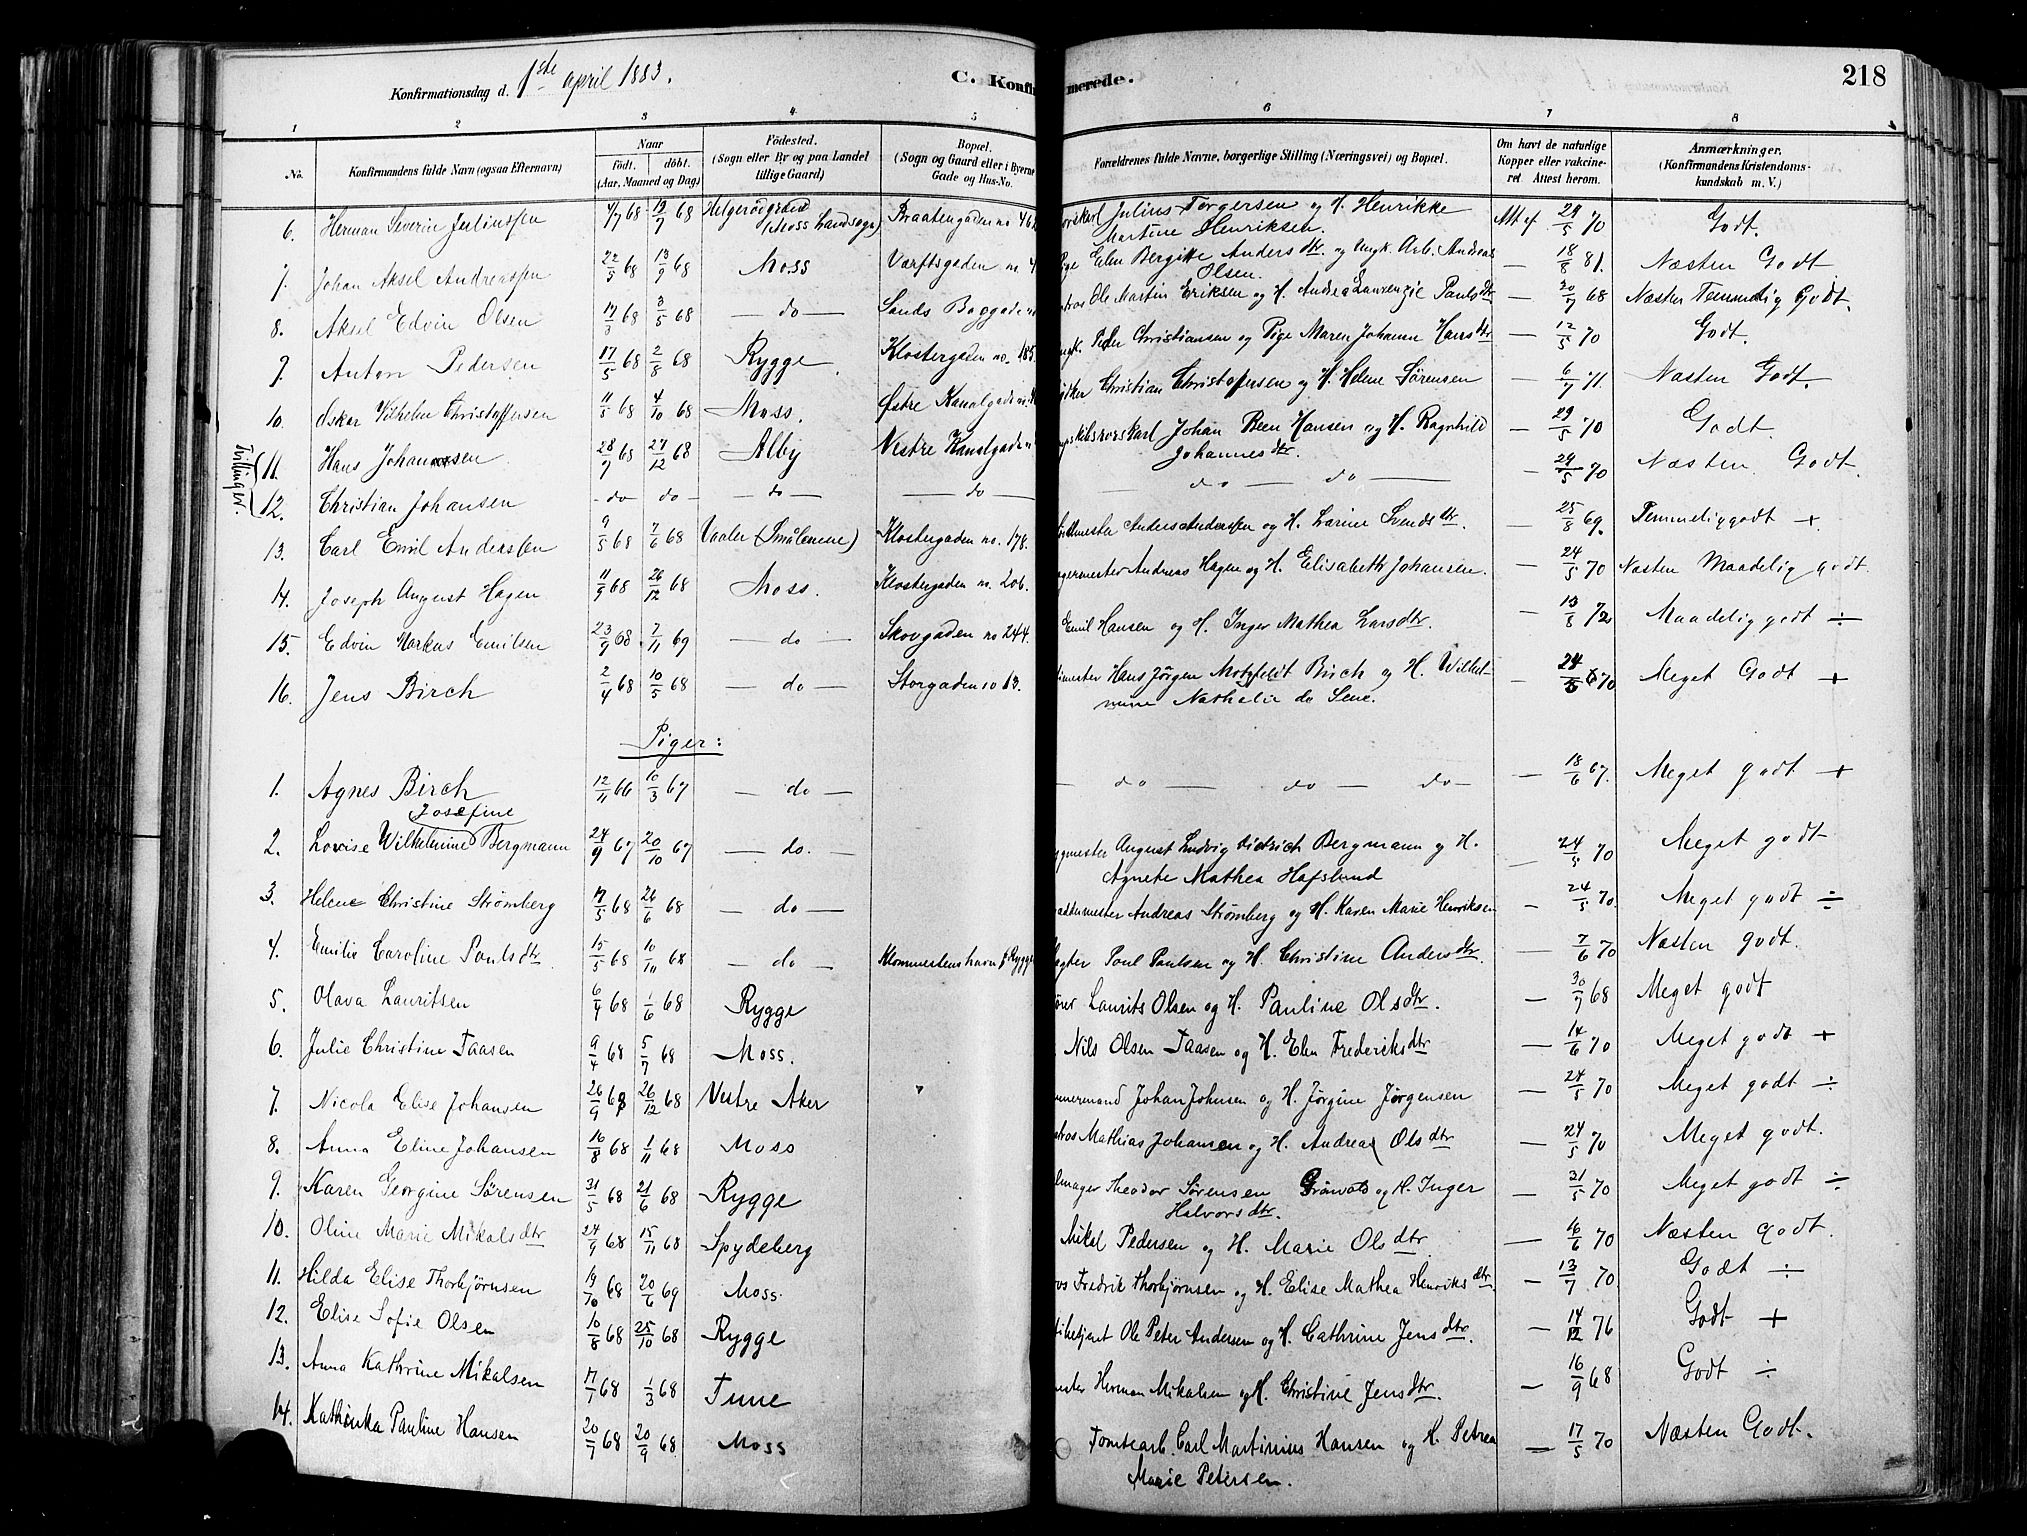 Konfirmationsdag d. 1ste april 1883.
C. Konfirmerede.
218
1 2 3 4 5 6 7 8
No.
Konfirmandens fulde Navn (ogsaa Efternavn)
Naar
födt. döbt.
(Aar, Maaned og Dag)
Födested.
(Sogn eller By og paa Landet
tillige Gaard)
Bopæl.
(Sogn og Gaard eller i Byerne
Gade og Hus-No.
Forældrenes fulde Navne, borgerlige Stilling (Næringsvei) og Bopæl.
Om havt de naturlige
Kopper eller vakcine-
ret. Attest herom.
Anmærkninger.
(Konfirmandens Kristendoms-
kundskab m. V.)
6. Herman Severin Juliussen 4/7 68 19/7 68 (Moss Landsogn) Braatengaden no 462 Julius Torgersen og H. Henrikke Att af 29/5 70 Godt.
Martine Henriksen.
7. Johan Aksel Andreassen 22/5 68 13/9 68 Moss Værftsgaden no. Elen Bergitte Andersdtr. og Ungk. Arb. Andreas — 18/8 81. Næsten Godt
Olsen.
8. Aksel Edvin Olsen 17/3 68 3/5 68 — do — Sands Baggaden Ole Martin Eriksen og H. Andrea Laurenzie Paulsdtr — 20/7 68 Næsten Temmelig Godt.
9. Anton Pedersen 17/5 68 2/8 68 Rygge Klostergaden no. 185 Peder Christiansen og Pige Maren Johanne Hansdtr — 12/5 70 Godt.
10. Oskar Vilhelm Christoffersen 11/5 68 4/10 68 Moss. Østre Kanalgaden Christian Christofersen og H. Helene Sørensen — 6/7 71. Næsten Godt.
Tvillinger.
11. Hans Johansen 28/9 68 27/12 68 Alby Vestre Kanalgaden Johan Been Hansen og H. Ragnhild — 29/5 70 Godt.
Johannesdtr.
12. Christian Johansen - do - do - — do — — do — — do — do — — 29/5 70 Næsten Godt.
13. Carl Emil Anderssen 9/5 68 7/6 68 Vaaler (Smålenene) Klostergaden no. 178. Anders Anderssen og H. Larine Svendsdtr. — 25/8 69. Temmeliggodt +.
14. Joseph August Hagen 11/9 68 26/12 68 Moss. Klostergaden no. 206. Andreas Hagen og H. Elisabeth Johansen. — 24/5 70 Næsten Maadelig godt.
15. Edvin Markus Emilsen 23/9 68. 7/11 69 — do — Skovgaden no 244. Emil Hansen og H. Inger Mathea Larsdtr. — 13/8 72 Maadelig godt ÷
16. Jens Birch 2/4 68 10/5 68 — do — Storgaden no 13. Hans Jörgen Motzfeldt Birch og H. Wilhel- — 24/5 70 Meget Godt +
mine Nathalie de Seue.
Piger:
1. Agnes Birch 12/11 66 10/3 67 — do — — do — do — do — — 18/6 67. Meget godt +
Josefine
2. Lovise Wilhelmine Bergmann 24/9 67 20/10 67 — do. — August Ludvig Didrich Bergmann og H. — 24/5 70 Meget godt
Agnete Mathea Hafslund
3. Helene Christine Strømberg 17/5 68 26/6 68 — do — Andreas Strømberg og H. Karen Marie Henriksen — 24/5 70. Meget godt ÷
4. Emilie Caroline Paulsdtr. 15/5 68 10/11 68 — do — Rygge Poul Paulsen og H. Christine Andersdtr. — 7/6 70 Næsten godt.
5. Olava Lauritsen 6/4 68 1/6 68 Rygge Laurits Olsen og H. Pauline Olsdtr. — 30/9 68 Meget godt
6. Julie Christine Taasen 9/4 68 5/7 68 Moss. Nils Olsen Taasen og H. Elen Frederiksdtr — 14/6 70 Meget godt +
7. Nicola Elise Johansen 26/9 68 26/12 68 Vestre Aker " Johan Johnsen og H. Jørgine Jørgensen — 24/5 70 Meget godt ÷
8. Anna Eline Johansen 16/8 68 1/11 68 Moss Mathias Johansen og H. Andrea Olsdtr — 24/5 70 Meget godt.
9. Karen Georgine Sørensen 31/5 68 21/6 68 Rygge Theodor Sørensen Grönvold og H. Inger — 31/5 70 Meget godt ÷
Halvorsdtr.
10. Oline Marie Mikalsdtr 24/9 68 15/11 68 Spydeberg Mikal Pedersen og H. Marie Olsdtr. — 16/6 70 Næsten godt.
11. Hilda Elise Thorbjørnsen 19/10 68 20/6 69 Moss. Fredrik Thorbjørnsen og H. Elise Mathea Henriksdtr — 13/7 70. Godt ÷
12. Elise Sofie Olsen 16/8 68 25/10 68 Rygge Ole Peter Andersen og H. Cathrine Jensdtr. — 14/12 76 Godt +
13. Anna Kathrine Mikalsen 17/1 68 1/3 68 Tune Herman Mikalsen og H. Christine Jensdtr. — 16/9 68 Godt ÷
14. Kathinka Pauline Hansen 20/7 68 20/9 68. Moss Tomtearb. Carl Martinius Hansen og H. Petrea — 17/5 70 Næsten Godt.
Marie Petersen.